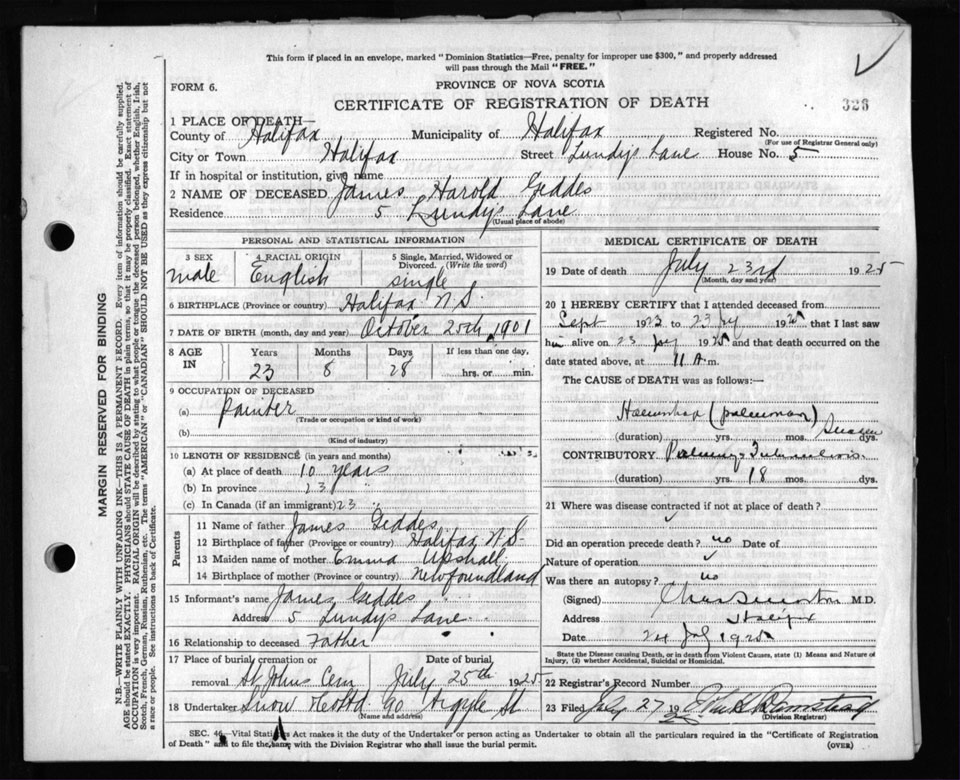 This form if placed in an envelope, marked "Dominion Statistics—Free, penalty for improper use $300," and properly addressed
will pass through the Mail "FREE."
FORM 6.
PROVINCE OF NOVA SCOTIA
CERTIFICATE OF REGISTRATION OF DEATH
328
1 PLACE OF DEATH—
County of Halifax Municipality of Halifax Registered No.
(For use of Registrar General only)
City or Town Halifax Street Lundys Lane House No. 5
If in hospital or institution, give name
2 NAME OF DECEASED James Harold Geddes
Residence 5 Lundys Lane
(Usual place of abode)
PERSONAL AND STATISTICAL INFORMATION
3 SEX 4 RACIAL ORIGIN 5 Single, Married, Widowed or
Divorced. (Write the word)
male English single
6 BIRTHPLACE (Province or country) Halifax N.S.
7 DATE OF BIRTH (month, day and year) October 25th, 1901
8 AGE IN Years Months Days If less than one day,
23 8 28 hrs. or min.
9 OCCUPATION OF DECEASED
(a) Painter
(Trade or occupation or kind of work)
(b)
(Kind of industry)
10 LENGTH OF RESIDENCE (in years and months)
(a) At place of death 10 years
(b) In province 23 "
(c) In Canada (if an immigrant) 23 "
Parents
11 Name of father James Geddes
12 Birthplace of father (Province or country) Halifax N.S.
13 Maiden name of mother Emma Upshall
14 Birthplace of mother (Province or country) Newfoundland
15 Informant's name James Geddes
Address 5 Lundys Lane
16 Relationship to deceased Father
17 Place of burial cremation or Date of burial
removal St Johns Cem July 25th 1925
18 Undertaker Snow & Co Ltd 90 Argyle St
(Name and address)
MEDICAL CERTIFICATE OF DEATH
19 Date of death July 23rd 1925
(Month, day and year)
20 I HEREBY CERTIFY that I attended deceased from
Sept 1923 to 23 July 1925 that I last saw
him alive on 23 July 1925 and that death occurred on the
date stated above, at 11 A m.
The CAUSE of DEATH was as follows:—
(pulmonary)
(duration) yrs. mos. dys.
CONTRIBUTORY Pulmonary Tuberculosis
(duration) yrs. 18 mos. dys.
21 Where was disease contracted if not at place of death?
Did an operation precede death? no Date of
Nature of operation
Was there an autopsy? no
(Signed) M.D.
Address Halifax
Date 24 July 1925
State the Disease causing Death, or in death from Violent Causes, state (1) Means and Nature of
Injury, (2) whether Accidental, Suicidal or Homicidal.
22 Registrar's Record Number
23 Filed July 27 1925
(Division Registrar)
SEC. 46—Vital Statistics Act makes it the duty of the Undertaker or person acting as Undertaker to obtain all the particulars required in the "Certificate of Registration
of Death" and to file the same with the Division Registrar who shall issue the burial permit.
(OVER)
MARGIN RESERVED FOR BINDING
N.B.—WRITE PLAINLY WITH UNFADING INK—THIS IS A PERMANENT RECORD. Every item of information should be carefully supplied.
AGE should be stated EXACTLY. PHYSICIANS should STATE CAUSE OF DEATH in plain terms, so that it may be properly classified. Exact statement of
OCCUPATION is very important. RACIAL ORIGIN will be described by stating to what people or tongue the deceased person belonged, whether English, Irish,
Scotch, French, German, Russian, Ruthenian, etc. The terms "AMERICAN" or "CANADIAN" SHOULD NOT BE USED as they express citizenship but not
a race or people. See instructions on back of Certificate.